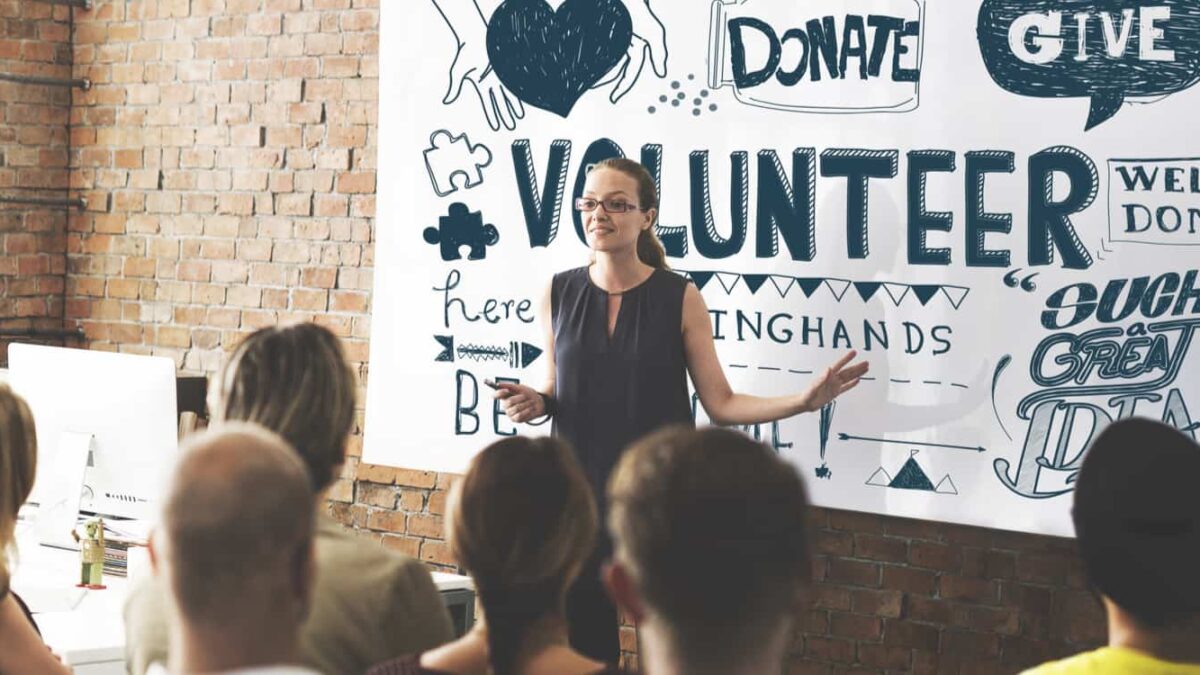 DONATE
GIVE
VOLUNTEER
here
INGHANDS
BE
“SUCH
a
GREAT
IDEA